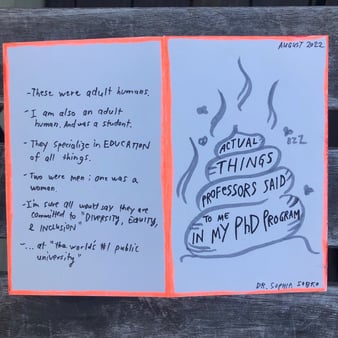 - These were adult humans.
- I am also an adult
human. And was a student.
- They specialize in EDUCATION
of all things.
- Two were men; one was a
woman.
- I'm sure all would say they are
committed to "DIVERSITY, EQUITY,
& INCLUSION"
- ... at "the world's #1 public
university"
AUGUST 2022
ACTUAL
THINGS
PROFESSORS SAID
TO ME
IN MY PhD PROGRAM
DR. SOPHIA